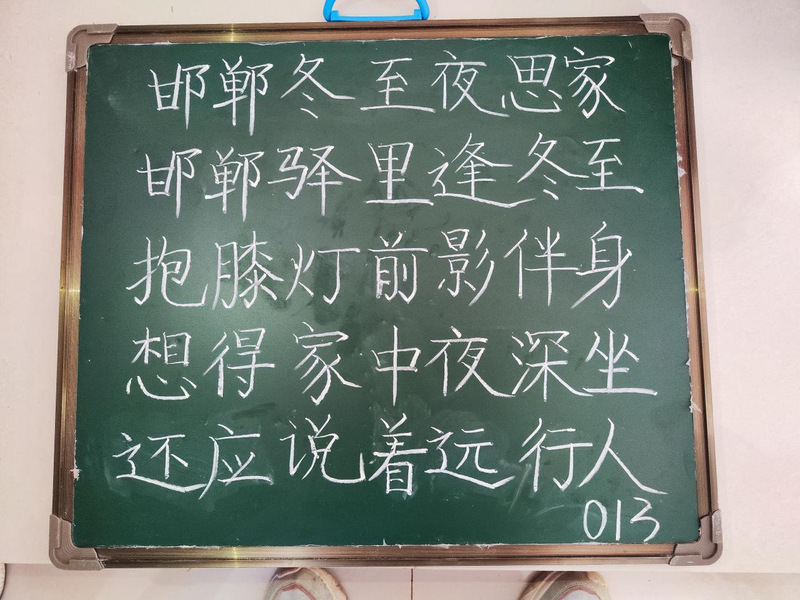 邯郸冬至夜思家
邯郸驿里逢冬至
抱膝灯前影伴身
想得家中夜深坐
还应说着远行人
013